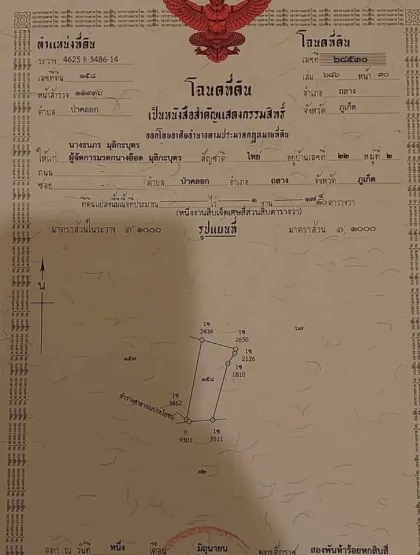 ตำแหน่งที่ดิน
ระวาง 4625 II 3486-14
เลขที่ดิน ๑๕๘
หน้าสำรวจ
ตำบล ป่าคลอก
โฉนดที่ดิน
เลขที่ ๖๘๕๓๐
เล่ม ๖๘๖ หน้า ๓๐
อำเภอ ถลาง
จังหวัด ภูเก็ต
โฉนดที่ดิน
เป็นหนังสือสำคัญแสดงกรรมสิทธิ์
ออกโดยอาศัยอำนาจตามประมวลกฎหมายที่ดิน
นางธนภร มุลิกะบุตร
ให้แก่ ผู้จัดการมรดกนางอ๊อด มุลิกะบุตร สัญชาติ ไทย อยู่บ้านเลขที่ ๒๒ หมู่ที่ ๒
ถนน -
ซอย - ตำบล ป่าคลอก อำเภอ ถลาง จังหวัด ภูเก็ต
ที่ดินแปลงนี้มีเนื้อที่ประมาณ - ไร่ ๑ งาน ตารางวา
(หนึ่งงานสิบเจ็ดเศษสี่ส่วนสิบตารางวา)
มาตราส่วนในระวาง ๑: ๑๐๐๐ รูปแผนที่ มาตราส่วน ๑: ๑๐๐๐
น
๖๗
1ช
2434
1ช
2650
1ช
2126
1ช
1810
๑๕๗
๑๕๘
1ช
3462
ทางสาธารณประโยชน์
9301
1ช
3511
๗๒
ออก ณ วันที่ หนึ่ง เดือน มิถุนายน พุทธศักราช สองพันห้าร้อยหกสิบสี่